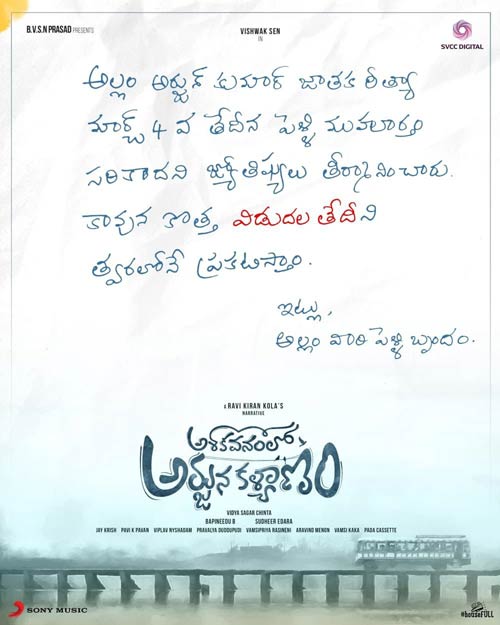 B.V.S.N PRASAD PRESENTS
VISHWAK SEN
IN
SVCC DIGITAL
అల్లం అర్జున్ కుమార్ జాతక రీత్యా
మార్చ్ 4 వ తేదీన పెళ్ళి ముహుర్తం
సరికాదని జ్యోతిష్యులు తీర్మానించారు.
కావున కొత్త విడుదల తేదీని
త్వరలోనే ప్రకటిస్తాం.
ఇట్లు,
అల్లం వారి పెళ్ళి బృందం.
A RAVI KIRAN KOLA'S
NARRATIVE
అశోకవనంలో
అర్జున కళ్యాణం
VIDYA SAGAR CHINTA
BAPINEEDU B SUDHEER EDARA
JAY KRISH PAVI K PAVAN VIPLAV NYSHADAM PRAVALYA DUDDUPUDI VAMSIPRIYA RASINENI ARAVIND MENON VAMSI KAKA PADA CASSETTE
SONY MUSIC
#houseFULL